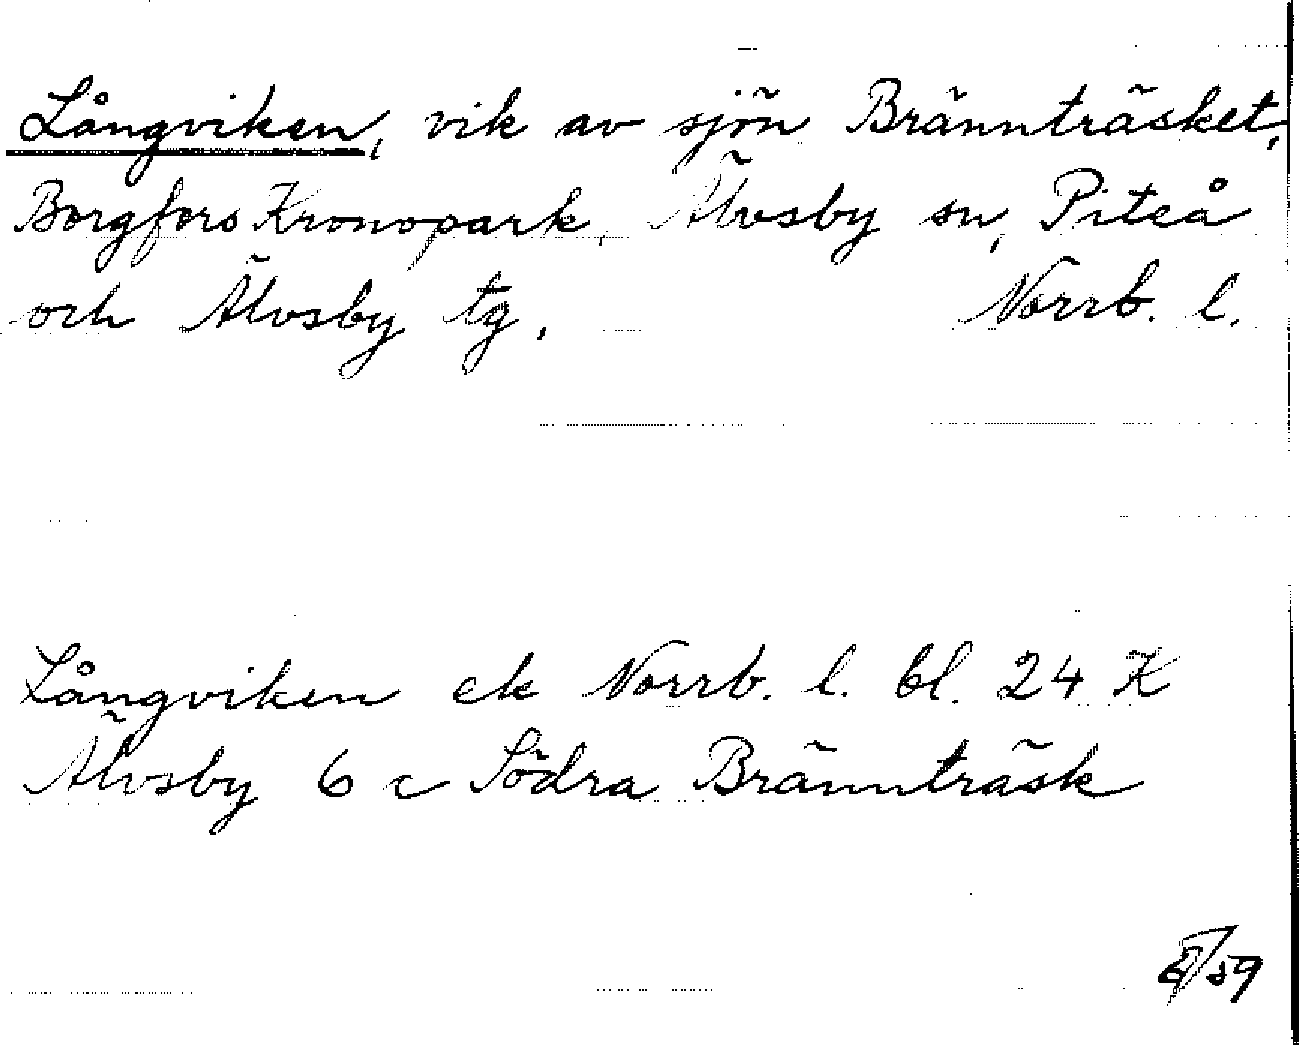 Långviken, vik av sjön Brännträsket,
Borgfors Kronopark, Älvsby sn, Piteå
och Älvsby tg. Norrb. l.
Långviken ek Norrb. l. bl. 24 K
Älvsby 6 c Södra Brännträsk
/59